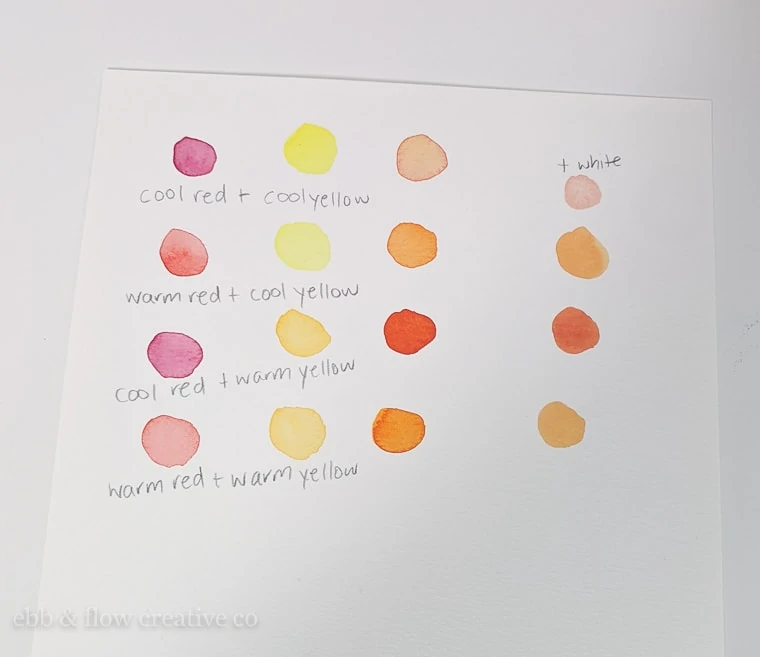 + white
cool red + cool yellow
warm red + cool yellow
cool red + warm yellow
warm red + warm yellow
ebb & flow creative co